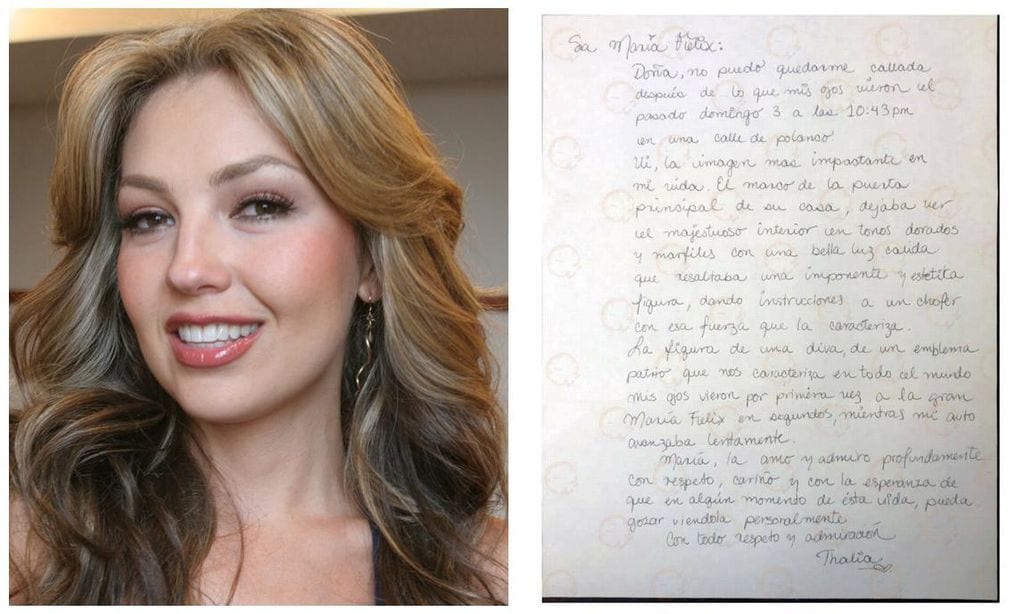 Sa María Félix:
Doña, no puedo quedarme callada
después de lo que mis ojos vieron el
pasado domingo 3 a las 10:43pm
en una calle de polanco
Vi, la imagen mas impactante en
mi vida. El marco de la puerta
principal de su casa, dejaba ver
el majestuoso interior en tonos dorados
y marfiles con una bella luz calida
que resaltaba una imponente y estetica
figura, dando instrucciones a un chofer
con esa fuerza que la caracteriza.
La figura de una diva, de un emblema
patrio que nos caracteriza en todo el mundo
mis ojos vieron por primera vez a la gran
María Félix en segundos, mientras mi auto
avanzaba lentamente.
María, la amo y admiro profundamente
con respeto, cariño y con la esperanza de
que en algún momento de ésta vida, pueda
gozar viendola personalmente
Con todo respeto y admiración
Thalía